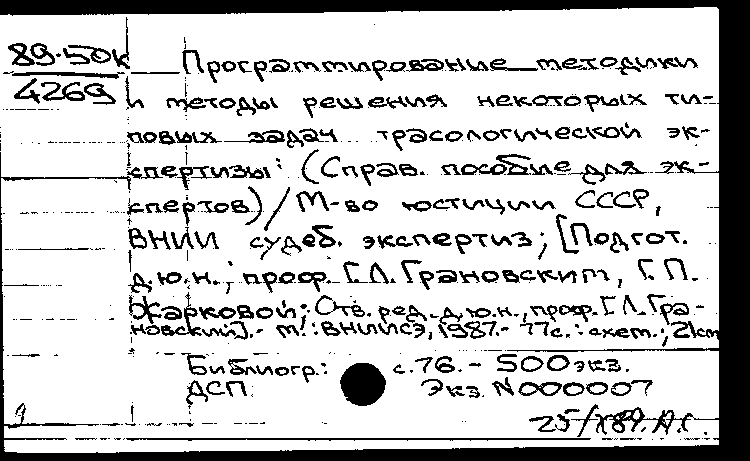 89-50к
4269
Программирование методики
и методы решения некоторых ти-
повых задач трасологической эк-
спертизы: (Справ. пособие для эк-
спертов) / М-во юстиции СССР,
ВНИИ судеб. экспертиз; [Подгот.
д.ю.н., проф. Г.Л. Грановским, Г.П.
Жарковой; Отв. ред. д.ю.н., проф. Г.Л. Гра-
новский]. - М.: ВНИИСЭ, 1987. - 77с.: схем.; 21cm
Библиогр.: с.76. - 500экз.
ДСП Экз. N000007
9 25/X89. А.С.